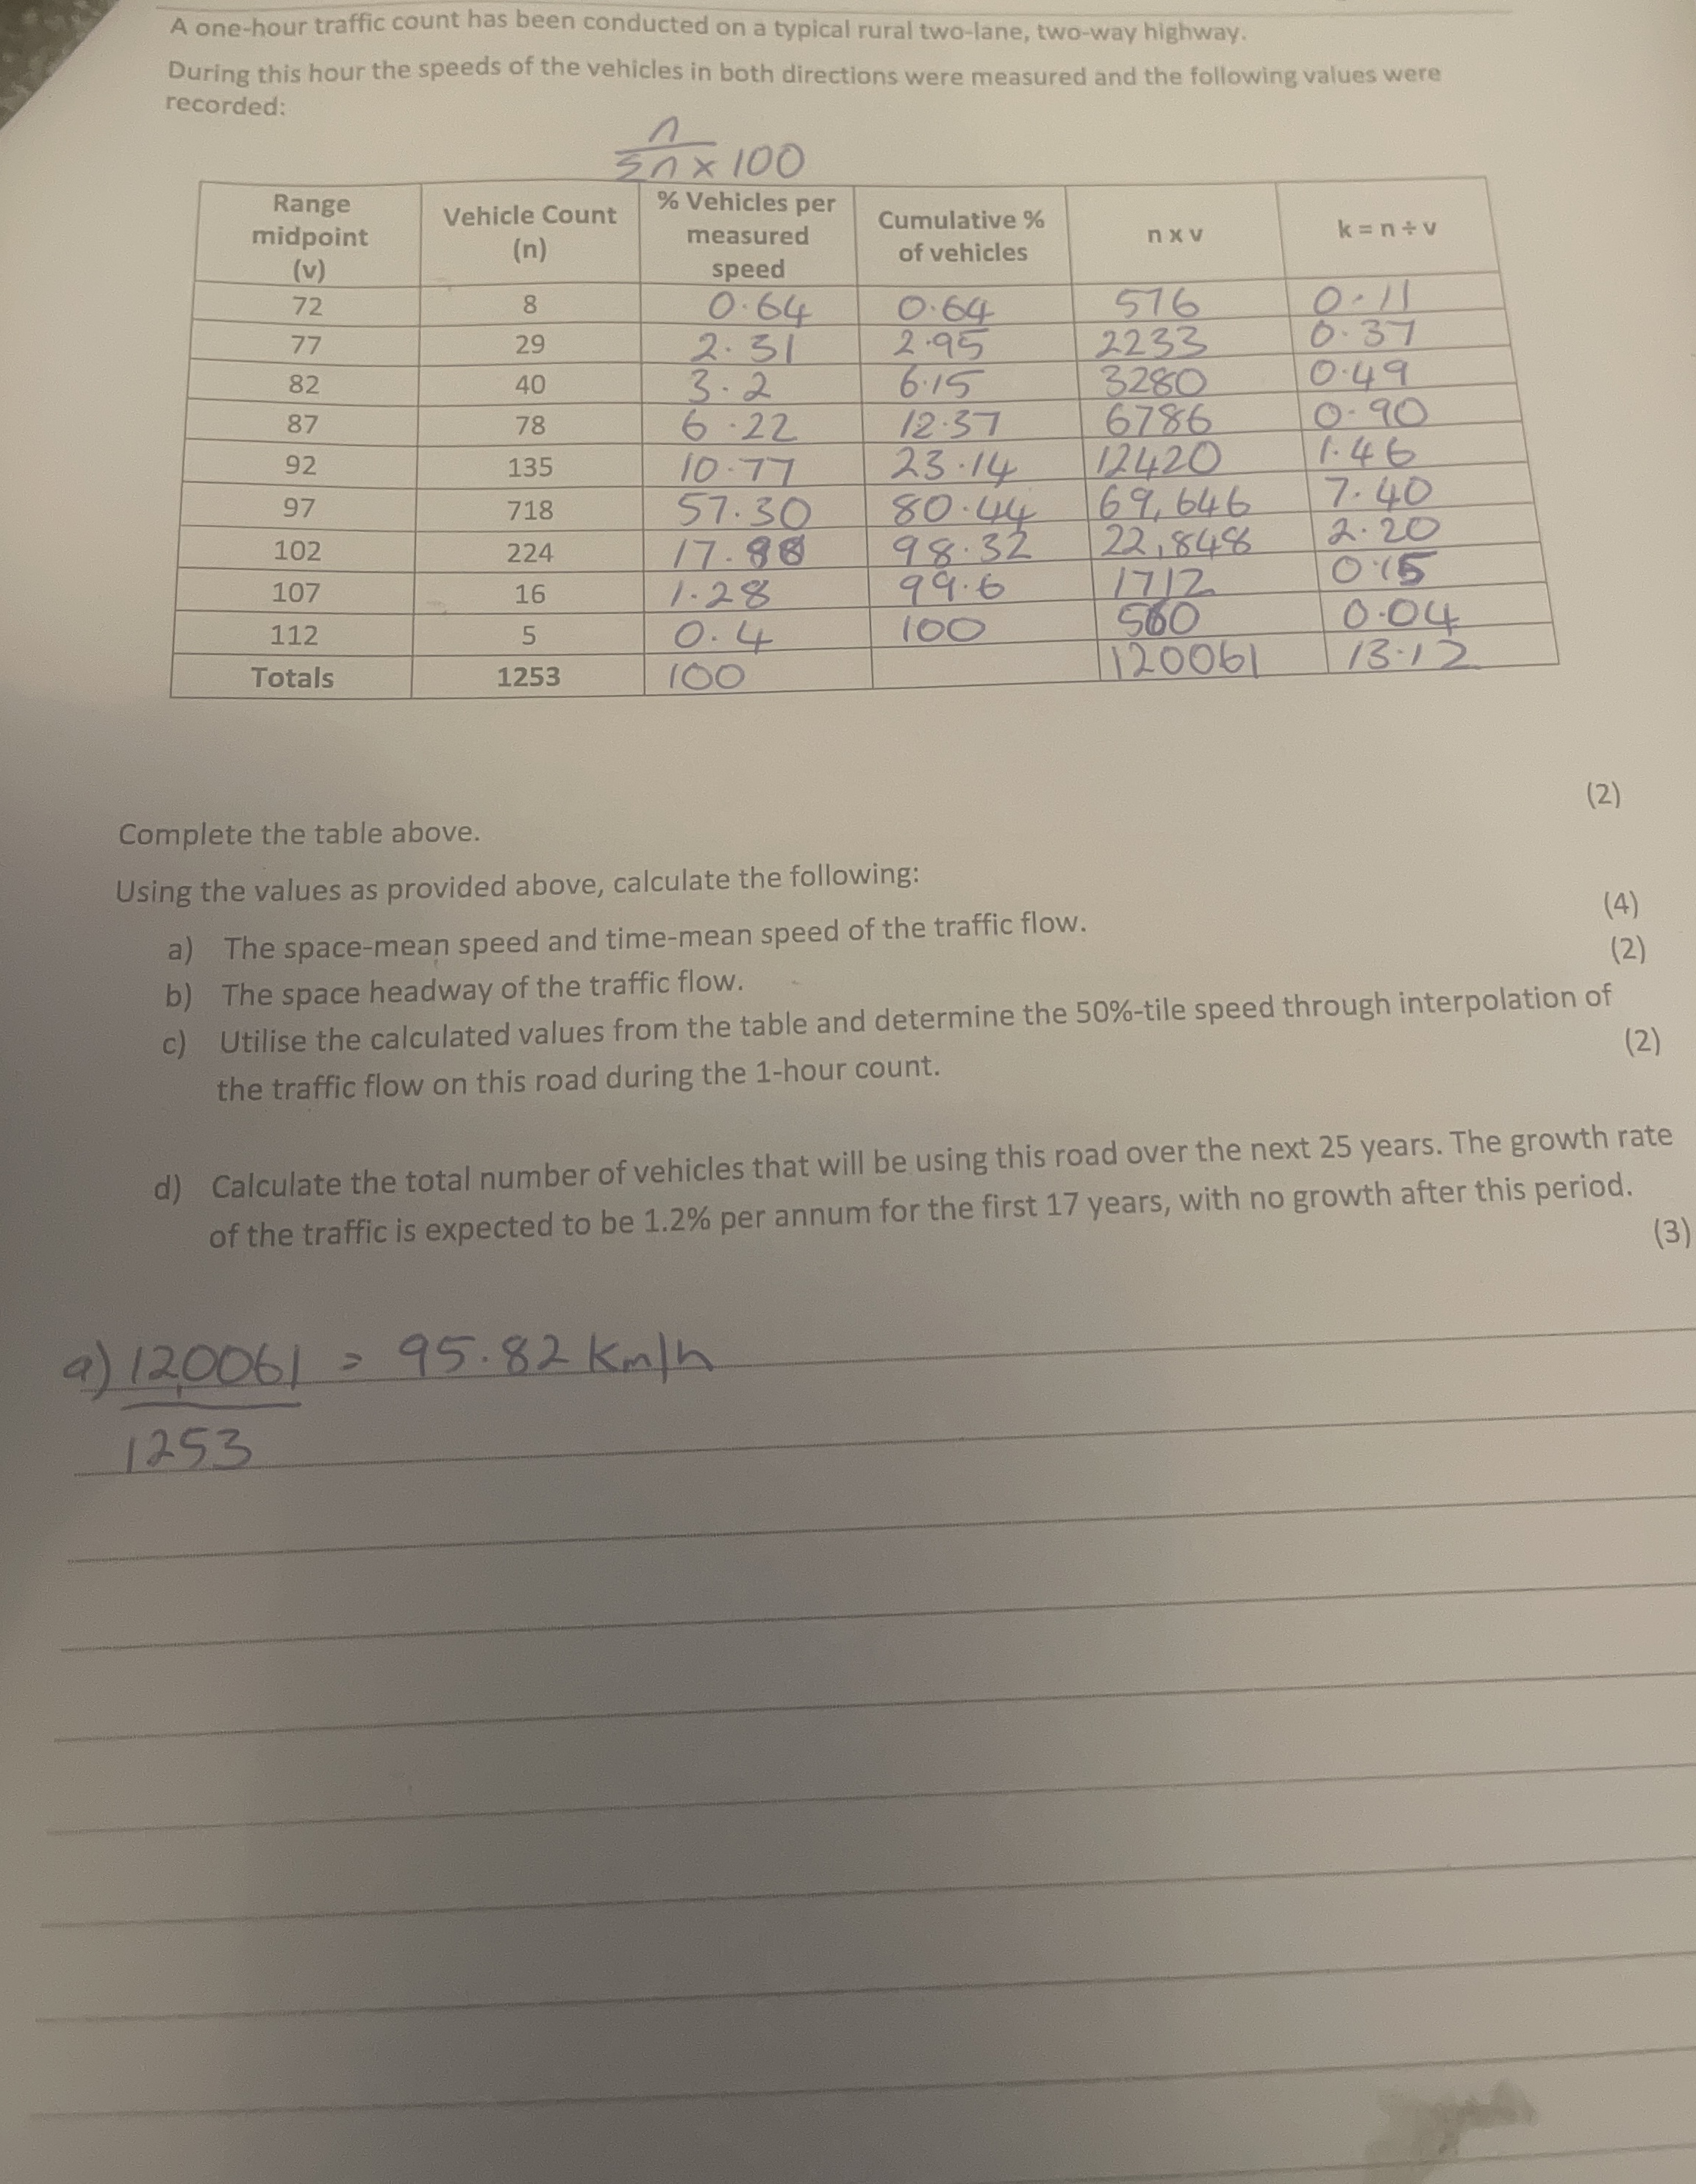 A one-hour traffic count has been conducted on a typical rural two-lane, two-way highway.
During this hour the speeds of the vehicles in both directions were measured and the following values were
recorded:
n
Σn x 100
Range midpoint (v) Vehicle Count (n) % Vehicles per measured speed Cumulative % of vehicles n x v k = n ÷ v
72 8 0.64 0.64 576 0.11
77 29 2.31 2.95 2233 0.37
82 40 3.2 6.15 3280 0.49
87 78 6.22 12.37 6786 0.90
92 135 10.77 23.14 12420 1.46
97 718 57.30 80.44 69,646 7.40
102 224 17.88 98.32 22,848 2.20
107 16 1.28 99.6 1712 0.15
112 5 0.4 100 560 0.04
Totals 1253 100 120061 13.12
(2)
Complete the table above.
Using the values as provided above, calculate the following:
a) The space-mean speed and time-mean speed of the traffic flow. (4)
b) The space headway of the traffic flow. (2)
c) Utilise the calculated values from the table and determine the 50%-tile speed through interpolation of
the traffic flow on this road during the 1-hour count. (2)
d) Calculate the total number of vehicles that will be using this road over the next 25 years. The growth rate
of the traffic is expected to be 1.2% per annum for the first 17 years, with no growth after this period.
(3)
a) 120061 = 95.82 km/h
1253